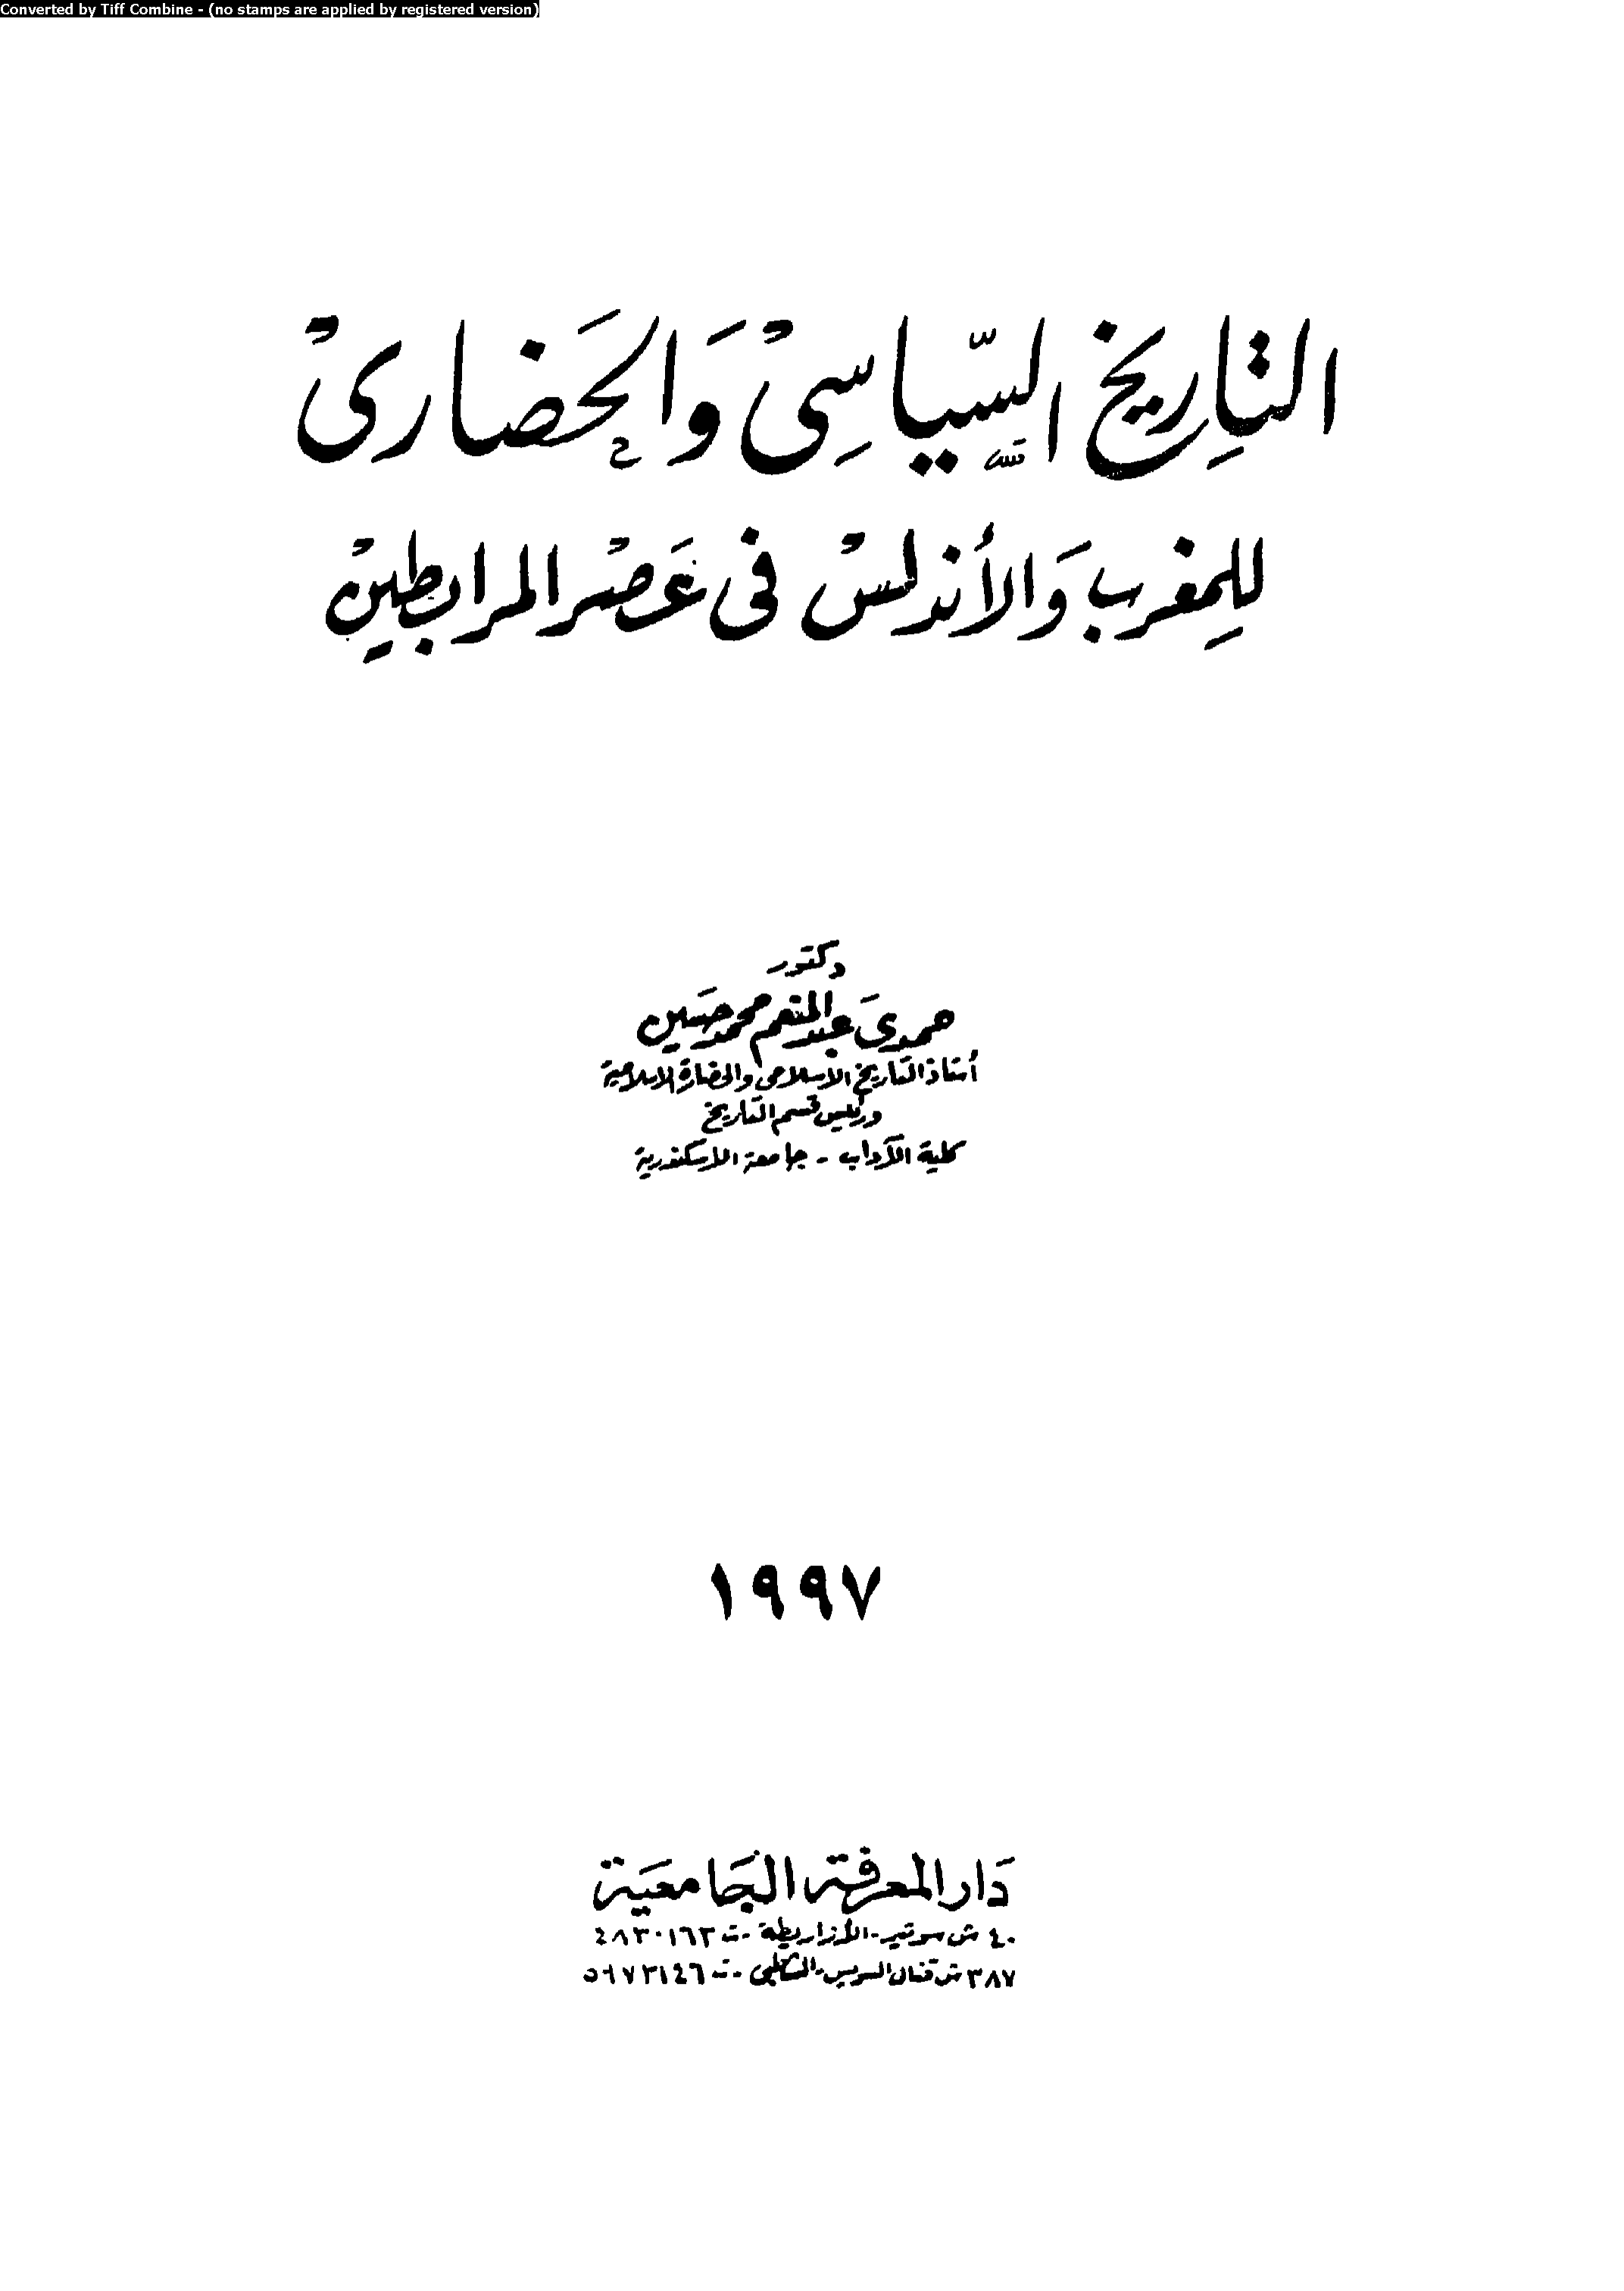 Converted by Tiff Combine - (no stamps are applied by registered version)
التاريخ السياسى والحضارى
للمغرب والأندلس فى عصر المرابطين
دكتور
حمدى عبد المنعم محمد حسين
أستاذ التاريخ الاسلامى والحضارة الاسلامية
ورئيس قسم التاريخ
كلية الآداب - جامعة الاسكندرية
١٩٩٧
دار المعرفة الجامعية
٤٠ ش سوتير - الأزاريطة - ت ٤٨٣٠١٦٣
٣٨٧ ش قنال السويس - الشاطبى - ت ٥٩٧٣١٤٦